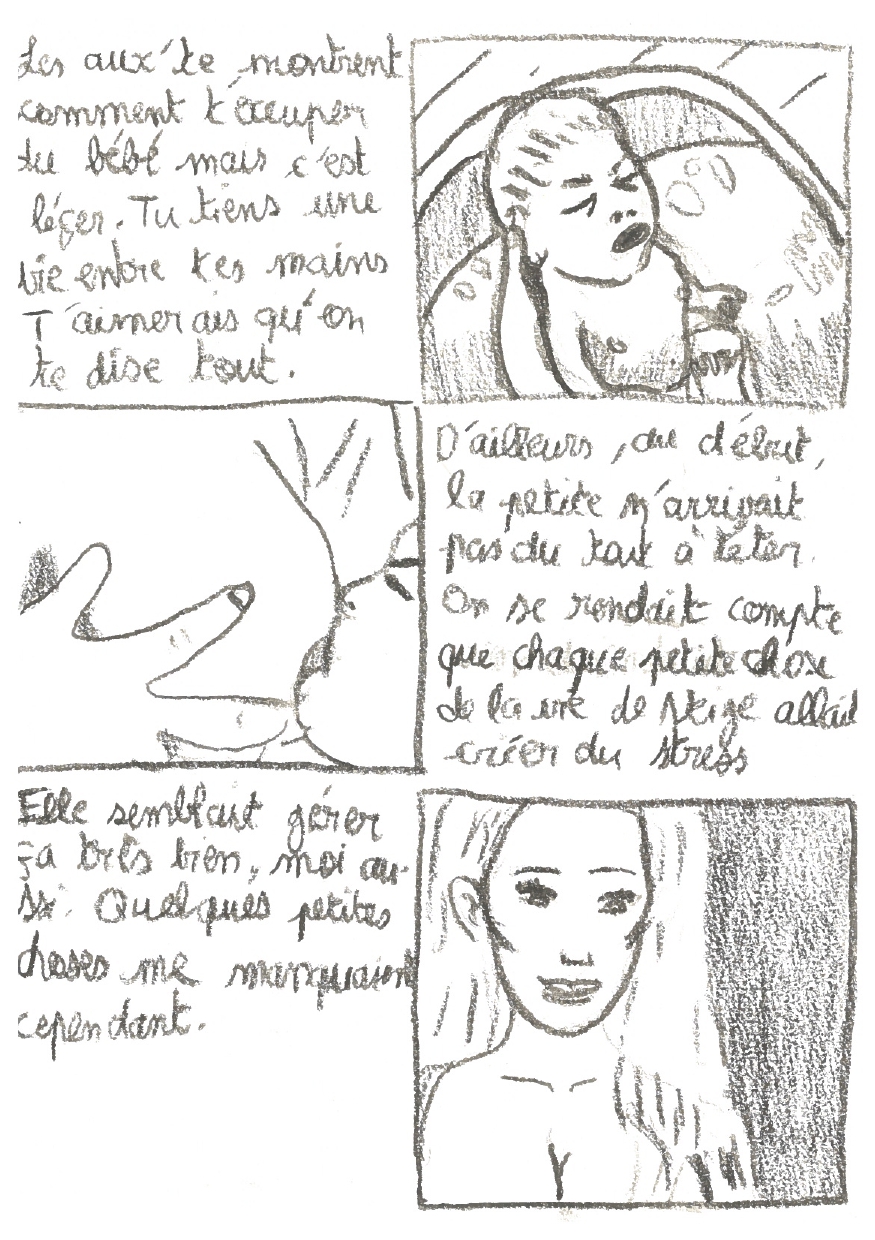 Les aux' te montrent
comment t'occuper
du bébé mais c'est
léger. Tu tiens une
vie entre tes mains
T'aimerais qu'on
te dise tout.
D'ailleurs, au début,
la petite n'arrivait
pas du tout à téter.
On se rendait compte
que chaque petite chose
de la vie de Neige allait
créer du stress
Elle semblait gérer
ça très bien, moi au-
ssi. Quelques petites
choses me manquaient
cependant.